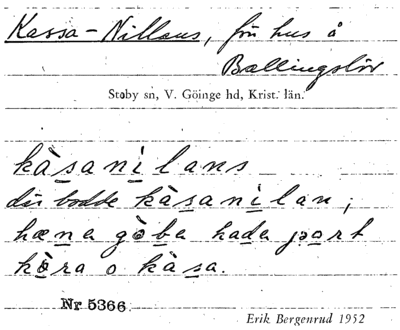 Kassa-Nillans, frn hus å
Ballingslöv
Stoby sn, V. Göinge hd, Krist. län.
kàsanilans
där bodde kàsanilan,
hæna gòba hada part
kòra o kàsa.
Nr 5366
Erik Bergenrud 1952